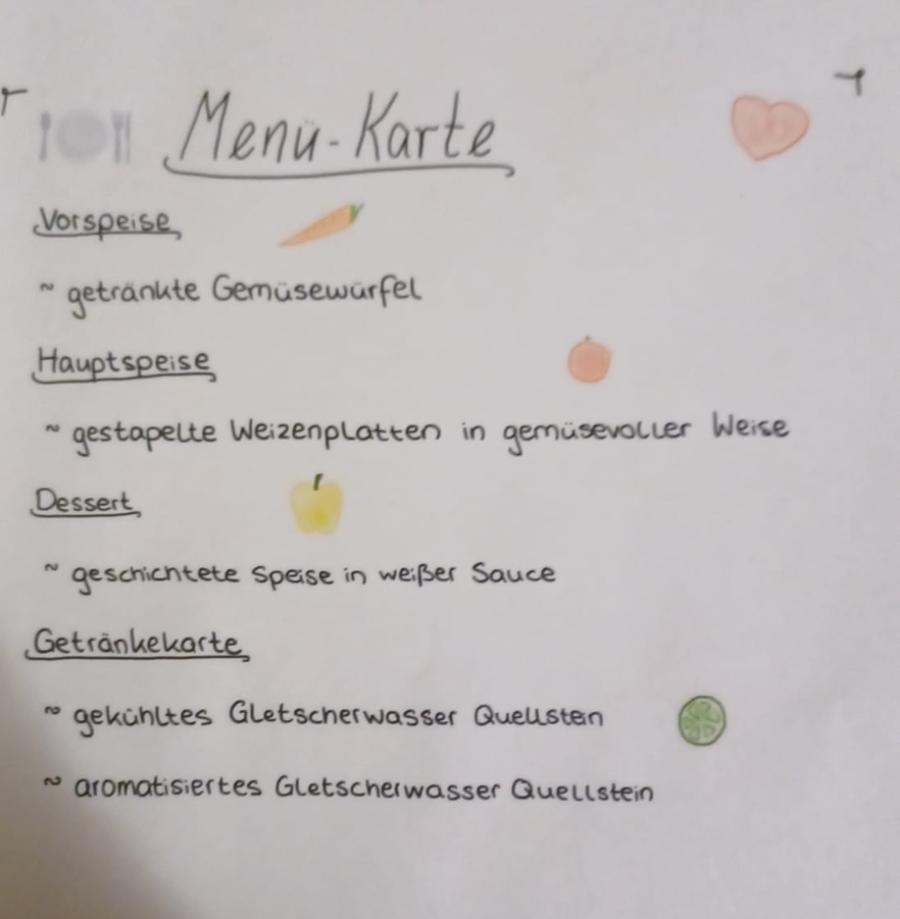 Menü-Karte
Vorspeise
~ getränkte Gemüsewürfel
Hauptspeise
~ gestapelte Weizenplatten in gemüsevoller Weise
Dessert
~ geschichtete Speise in weißer Sauce
Getränkekarte
~ gekühltes Gletscherwasser Quellstein
~ aromatisiertes Gletscherwasser Quellstein